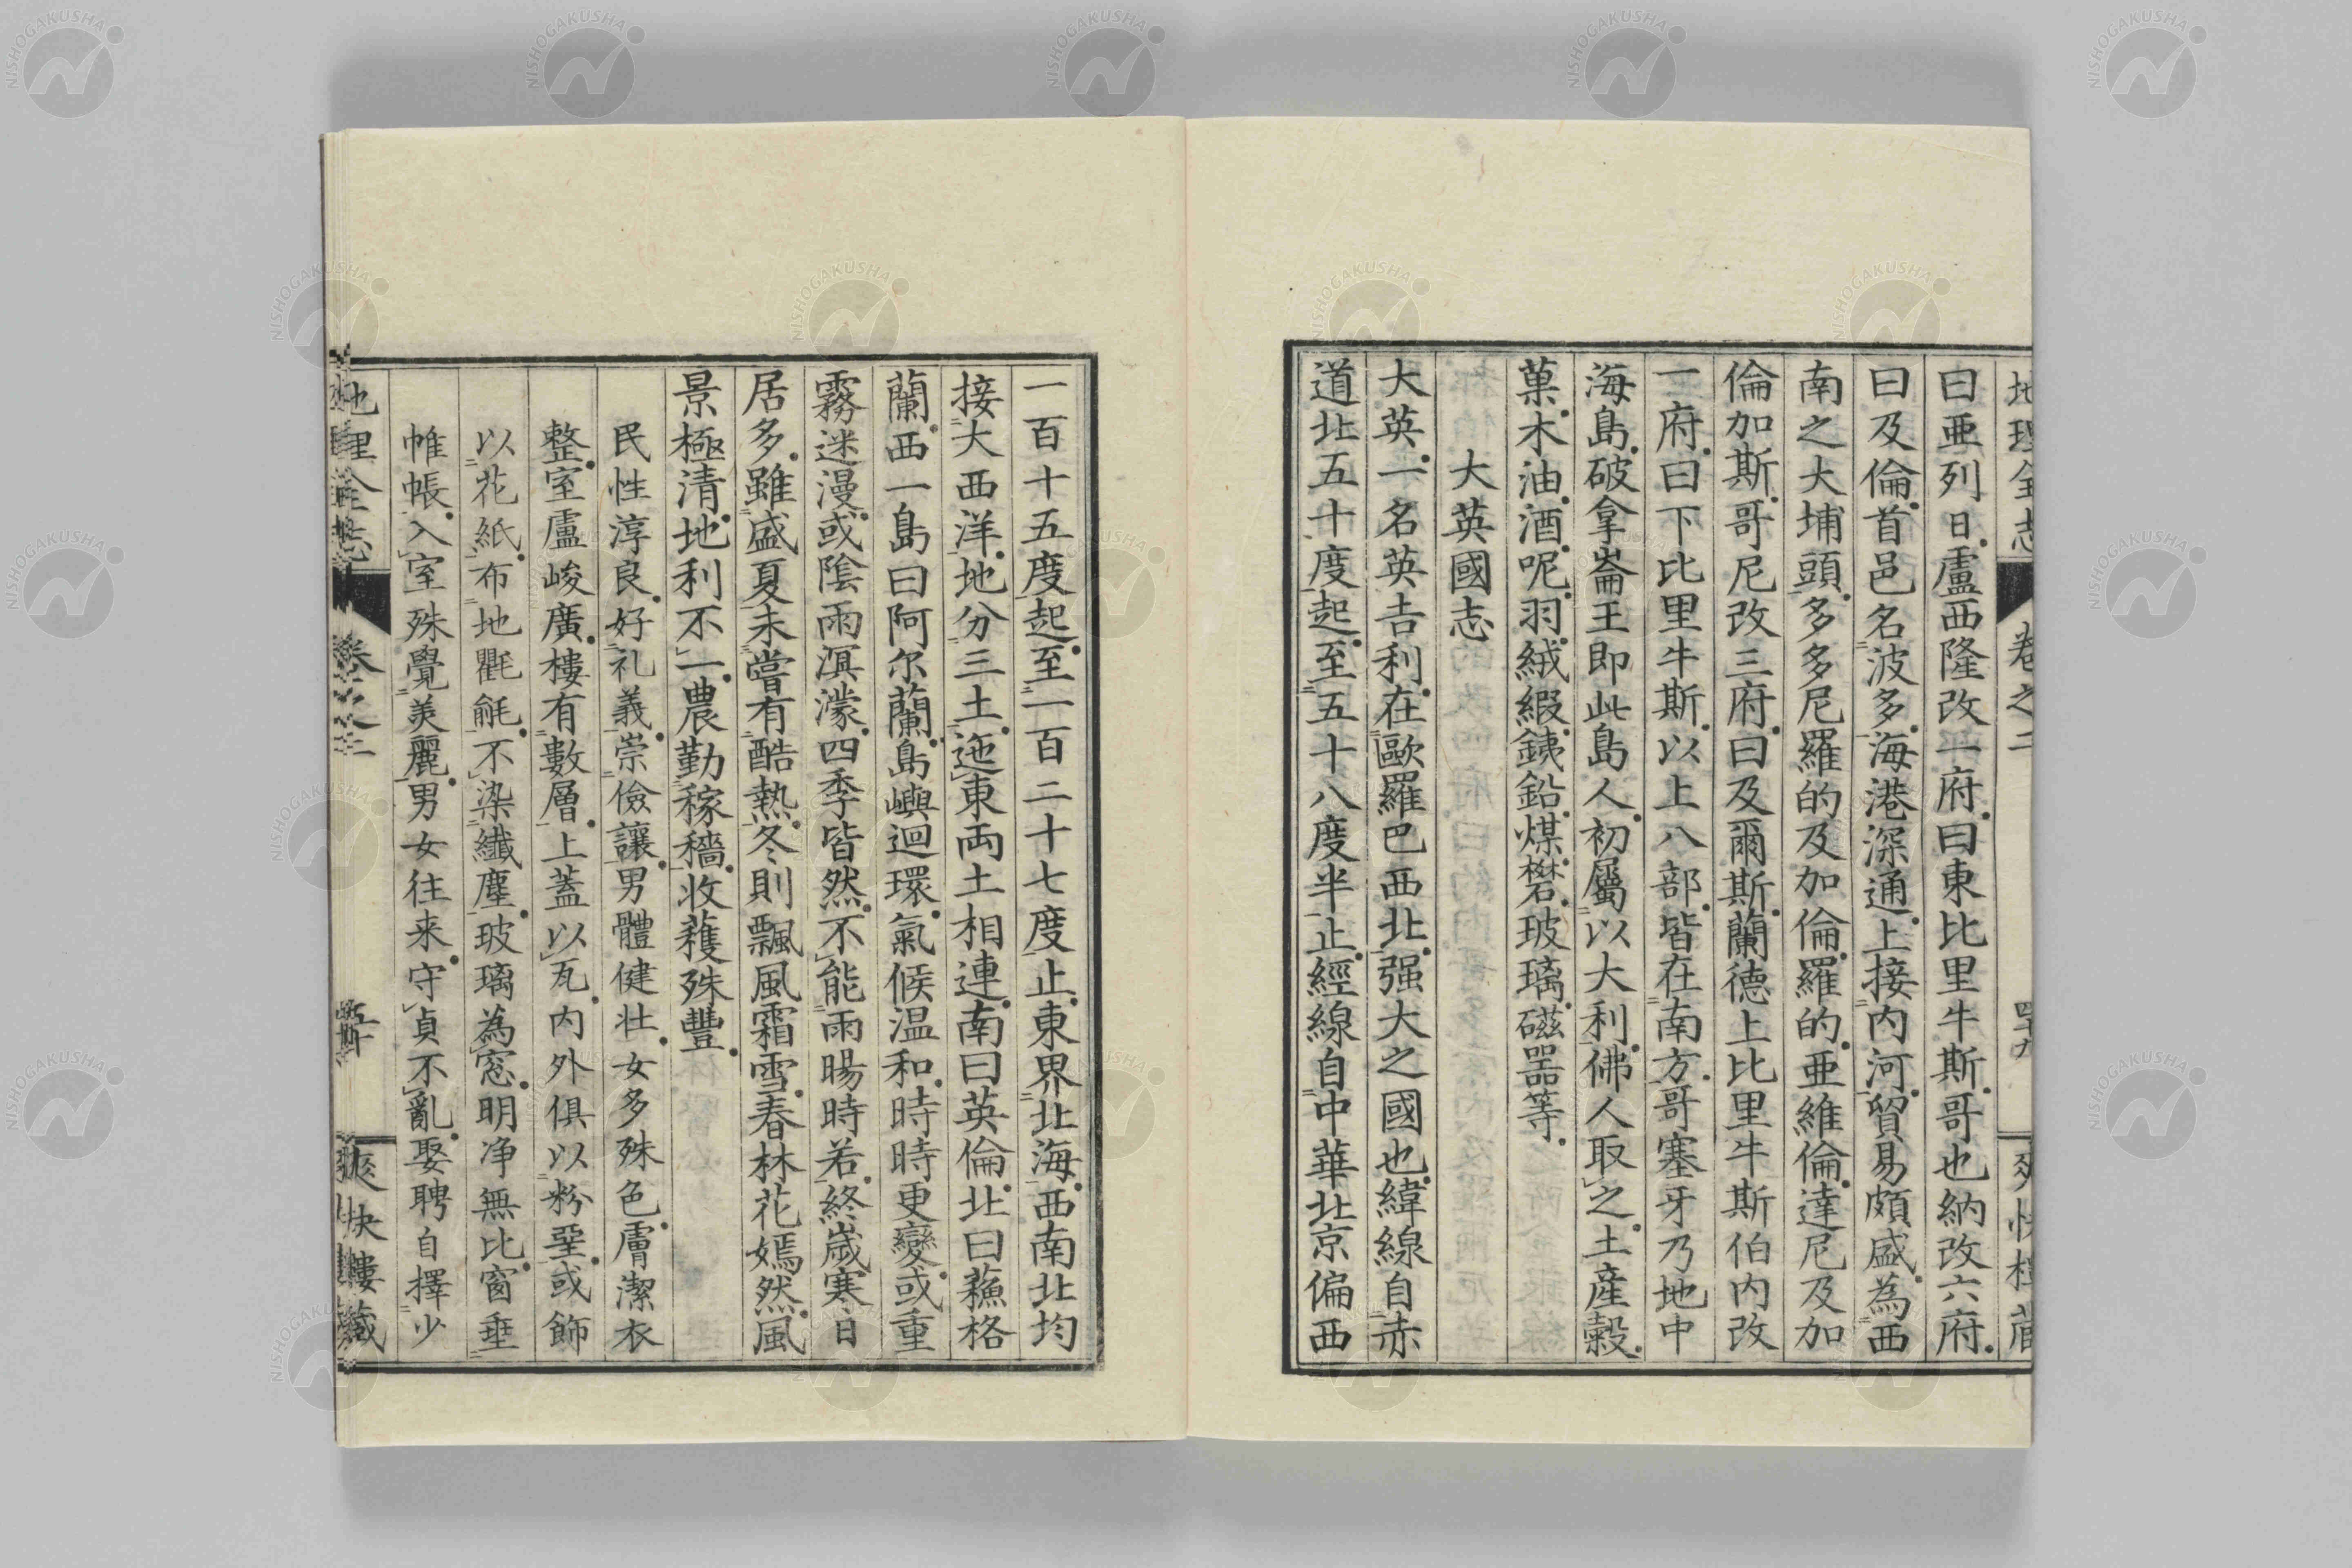 地理全志 卷之二 四十九 爽快樓藏
曰亜列日盧西隆改一府曰東比里牛斯哥也納改六府
曰及倫首邑名波多海港深通上接内河貿易頗盛為西
南之大埔頭多多尼羅的及加倫羅的亜維倫達尼及加
倫加斯哥尼改三府曰及爾斯蘭德上比里牛斯伯内改
一府曰下比里牛斯以上八部皆在南方哥塞牙乃地中
海島破拿崙王即此島人初屬以大利佛人取之土產穀
菓木油酒呢羽絨緞銕鉛煤礬玻璃磁器等
大英國志
大英一名英吉利在歐羅巴西北强大之國也緯線自赤
道北五十度起至五十八度半止經線自中華北京偏西
一百十五度起至一百二十七度止東界北海西南北均
接大西洋地分三土迤東両土相連南曰英倫北曰蘓格
蘭西一島曰阿尔蘭島嶼迴環氣候温和時時更變或重
霧迷漫或陰雨溟濛四季皆然不能雨暘時若終歲寒日
居多雖盛夏未嘗有酷熱冬則飄風霜雪春林花嫣然風
景極清地利不一農勤稼穡收蓷殊豐
民性淳良好礼義崇儉讓男體健壮女多殊色膚潔衣
整室盧峻廣樓有數層上蓋以瓦内外俱以粉堊或飾
以花紙布地氍毹不染纖塵玻璃為窓明净無比窗垂
帷帳入室殊覺美麗男女往来守貞不亂娶聘自擇少
地理全志 卷之二 爽快樓藏
NISHOGAKUSHA